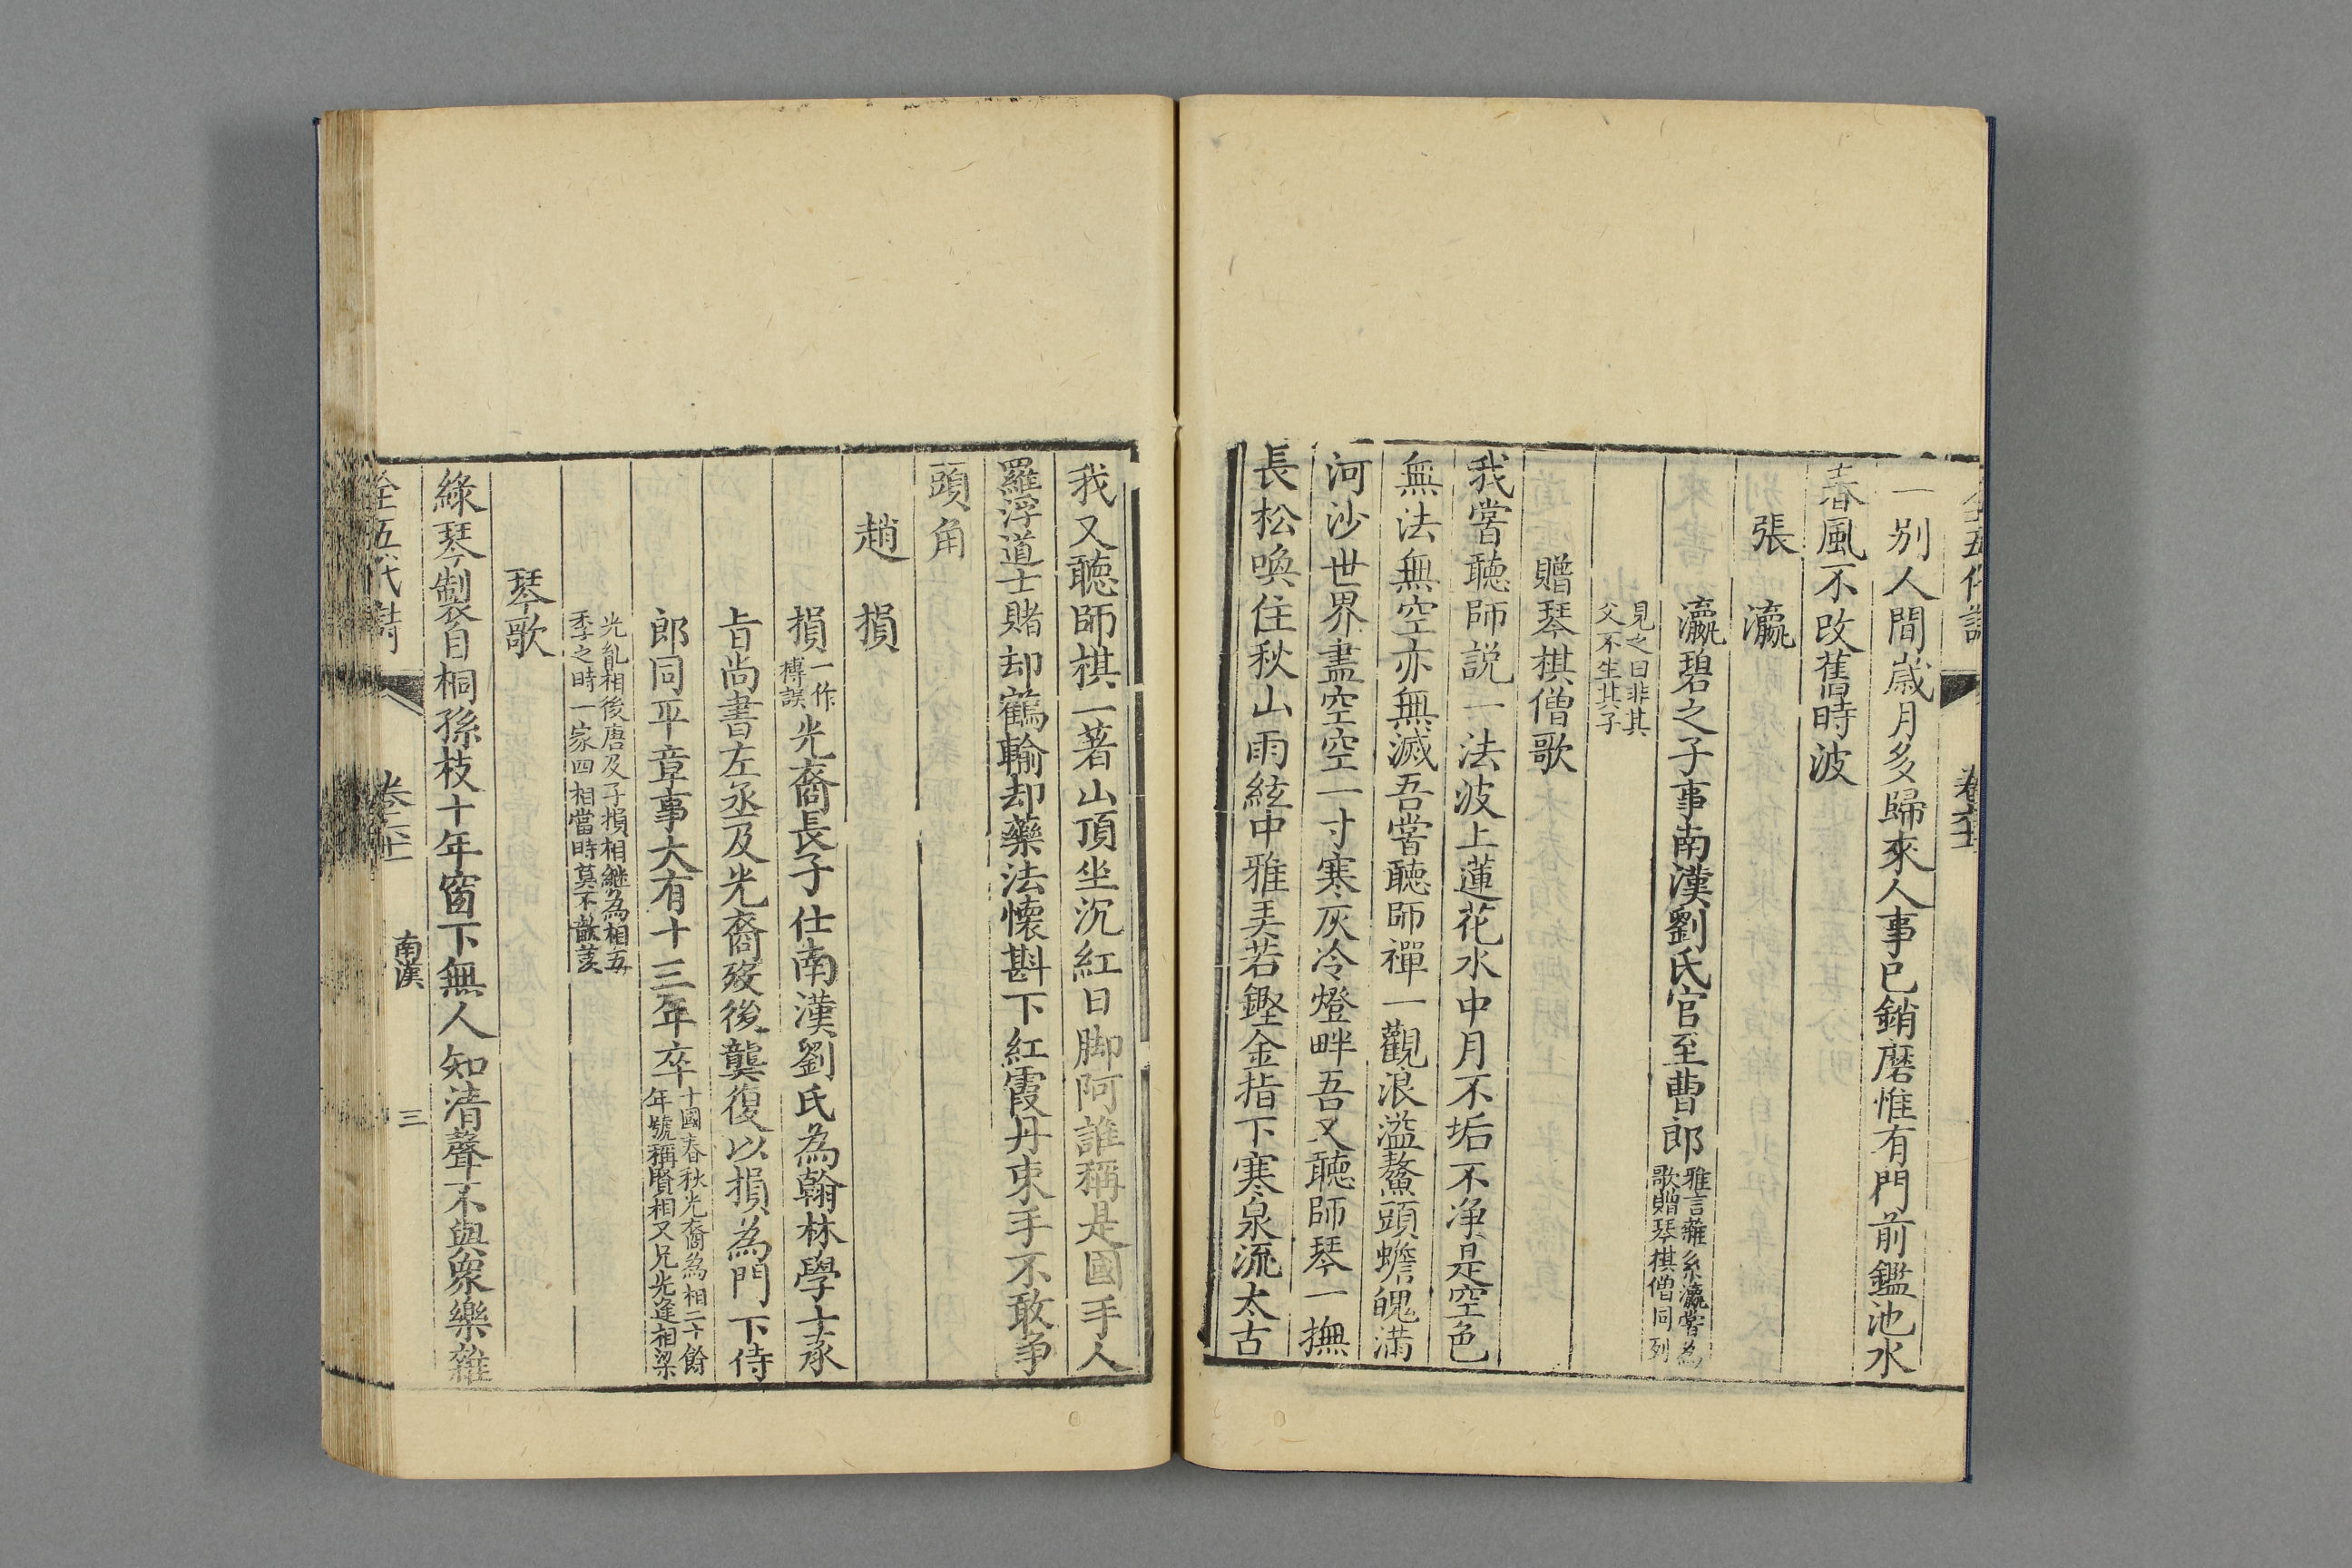 一别人間歲月多歸來人事已銷磨惟有門前鑑池水
春風不改舊時波
張瀛
瀛碧之子事南漢劉氏官至曹郎雅言雜系瀛嘗為
歌贈琴棋僧同列
見之曰非其
父不生其子
贈琴棋僧歌
我嘗聽師説一法波上蓮花水中月不垢不净是空色
無法無空亦無滅吾嘗聽師禪一觀浪溢鰲頭蟾魄满
河沙世界盡空空一寸寒灰冷燈畔吾又聽師琴一撫
長松喚住秋山雨絃中雅美若鏗金指下寒泉流太古
我又聽師棋一著山頂坐沉紅日脚阿誰稱是國手人
羅浮道士賭却鶴輸却藥法懷斟下紅霞丹束手不敢争
頭角
趙損
損一作
榑誤光裔長子仕南漢劉氏為翰林學士承
㫖尚書左丞及光裔歿後龔復以損為門下侍
郎同平章事大有十三年卒十國春秋光裔為相二十餘
年號稱賢相又兄光逢相梁
光胤相後唐及子損相継為相五
季之時一家四相當時莫不歆羡
琴歌
綠琴製自桐孫枝十年窗下無人知清聲不與衆樂雜
全五代詩
南漢
三